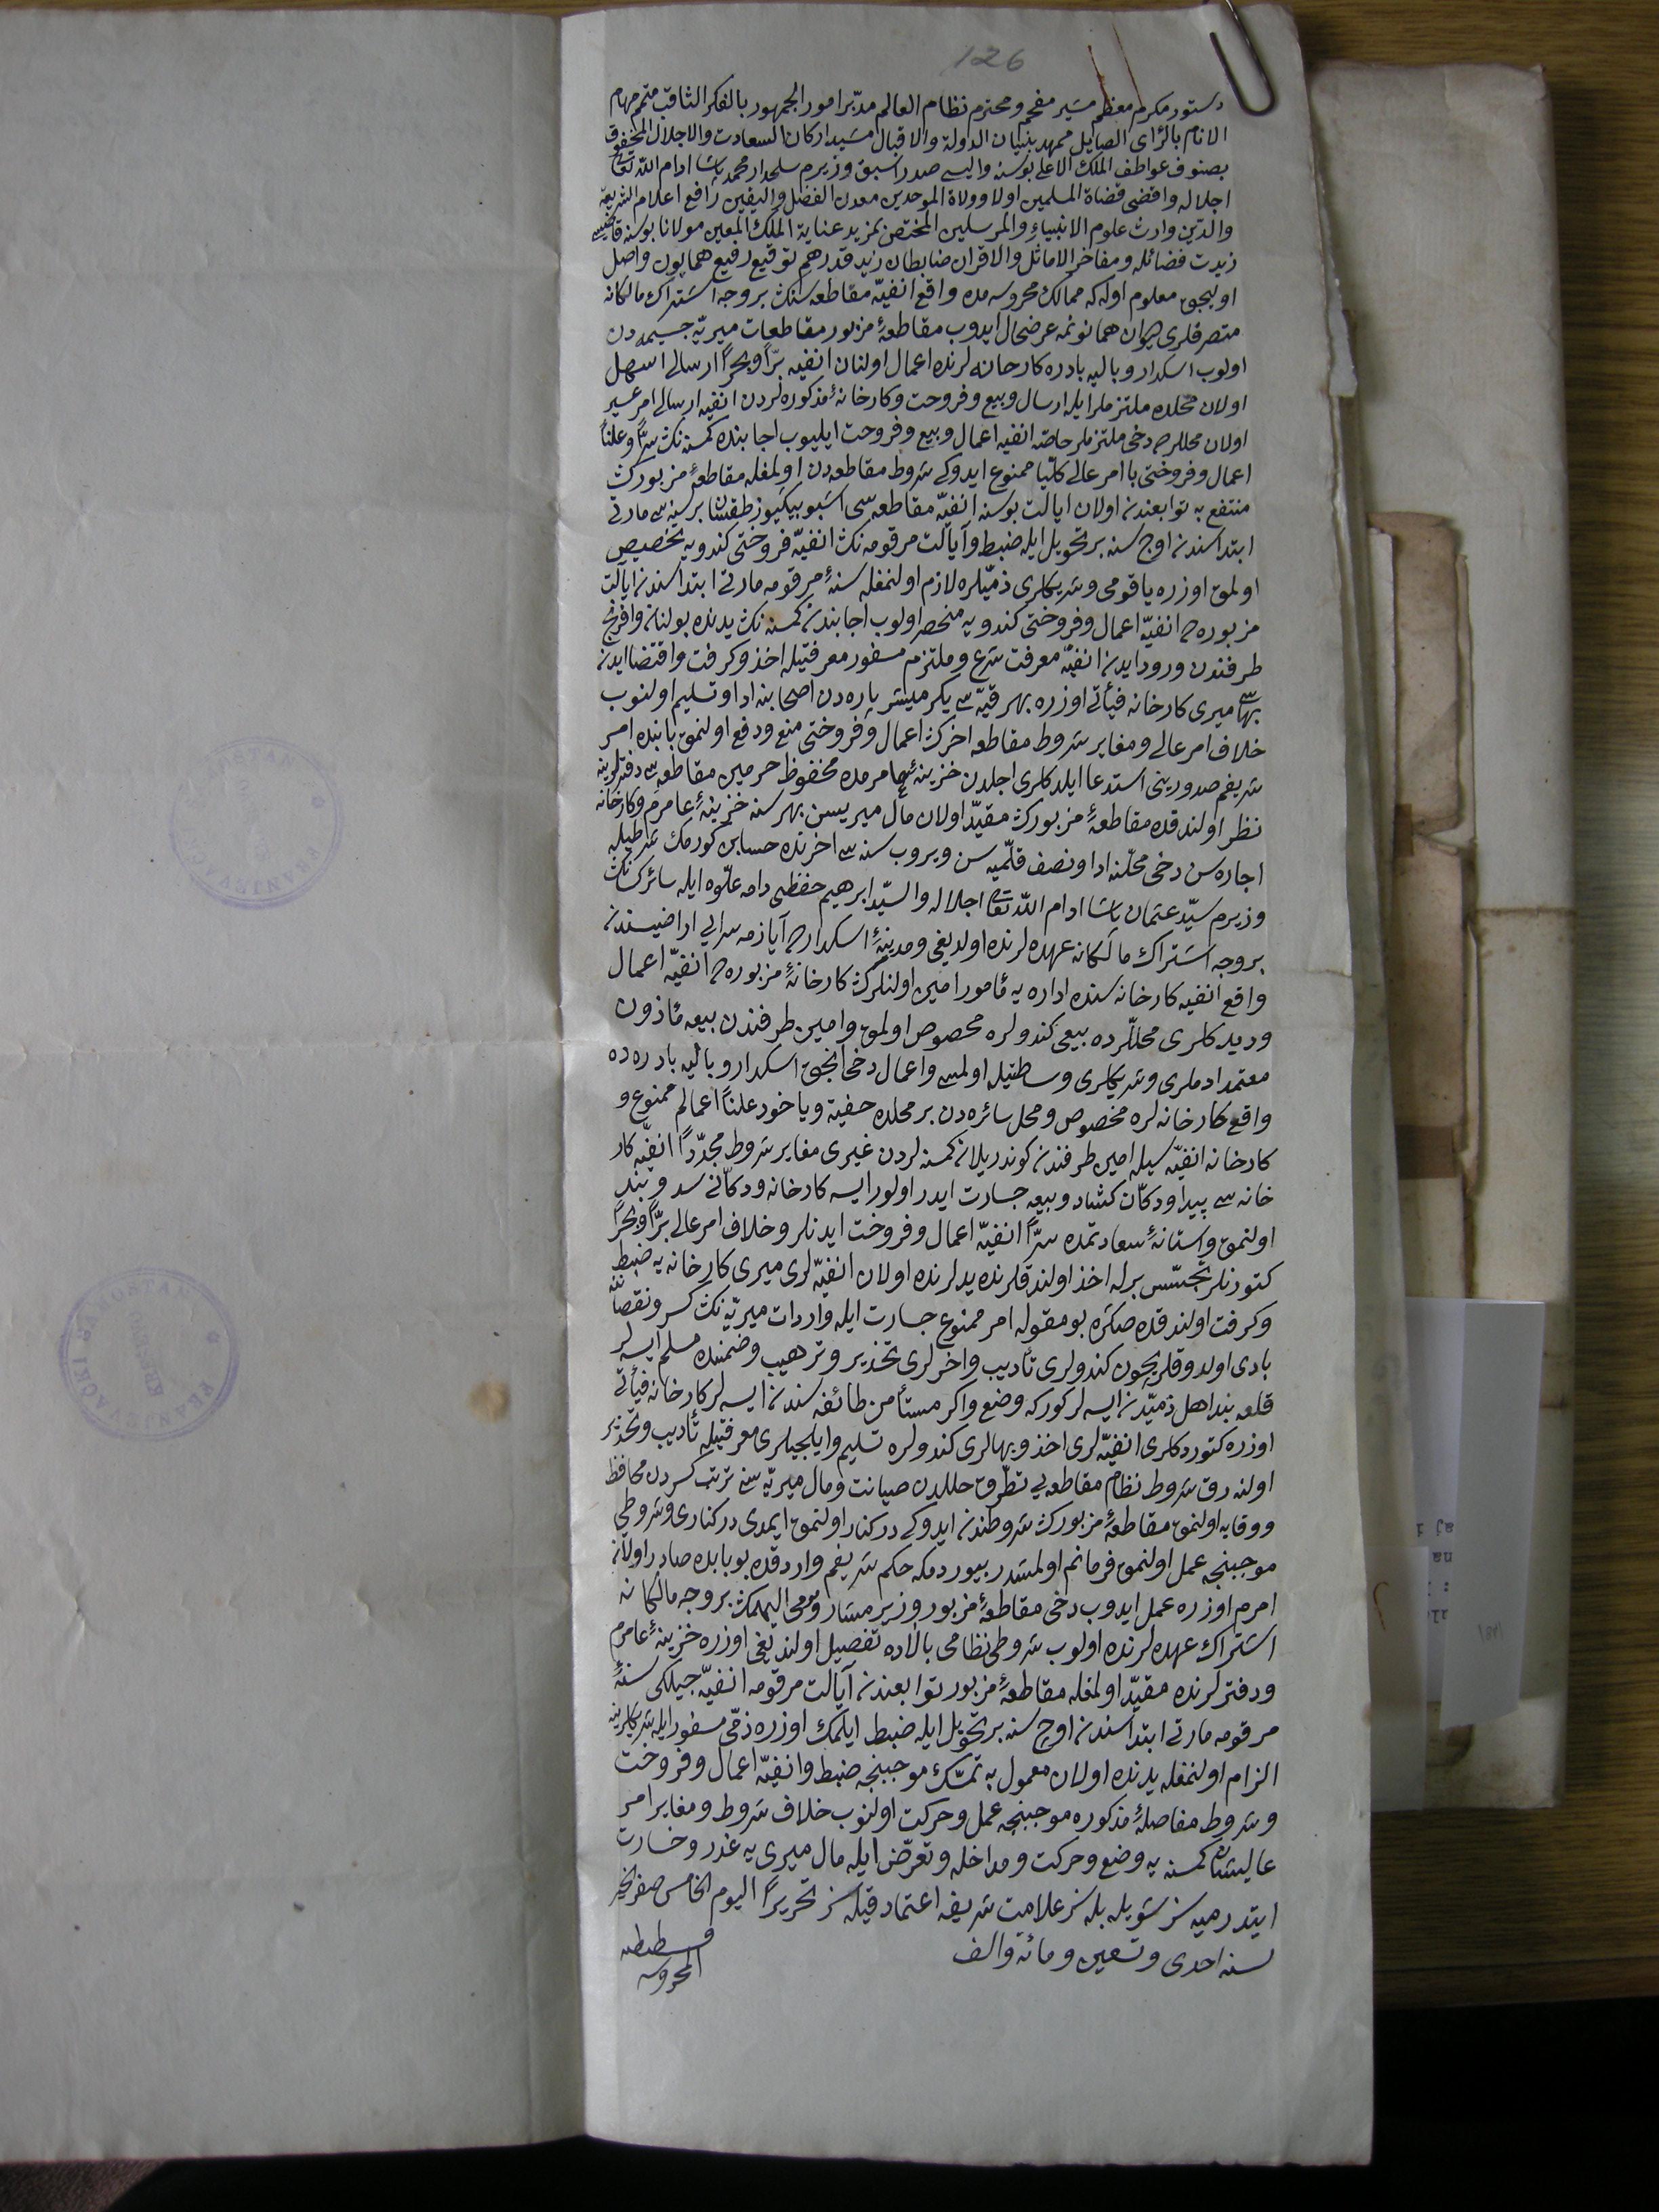 126
دستور مكرم معظم مشير مفخم ومحترم نظام العالم مدبر امور الجمهور بالفكر الثاقب متمم مهام
الانام بالرأى الصايل ممهد بنيان الدولة والاقبال مشيد اركان السعادت والاجلال المحفوف
بصنوف عواطف الملك الاعلى بوسنه واليسى صدر اسبق وزيرم سلحدار محمد پاشا ادام الله تعالى
اجلاله واقضى قضاة المسلمين اولا وولاة الموحدين معدن الفضل واليقين رافع اعلام الشريعة
والدين وارث علوم الانبياء والمرسلين المختص بمزيد عناية الملك المعين مولانا بوسنه قاضيسى
زيدت فضائله ومفاخر الاماثل والاقران ضابطان زيد قدرهم توقيع رفيع همايون واصل
اوليجق معلوم اوله كه ممالك محروسه مده واقع انفيه مقاطعه سنك بر وجه اشتراك مالكانه
متصرفلرى ديوان همايونمه عرضحال ايدوب مقاطعۀ مزبور مقاطعات ميريۀ جسيمه دن
اولوب اسكدار و باليه بادره كارخانه لرنده اعمال اولنان انفيه برًّا وبحرًا ارسالى اسهل
اولان محلده ملتزملر ايله ارسال وبيع وفروخت وكارخانۀ مذكوره لردن انفيه ارسالى امر عسير
اولان محللرده دخى ملتزملر خاصه انفيه اعمال وبيع وفروخت ايليوب اجانبدن كمسنه نك سرًّا وعلنًا
اعمال وفروختى با امر عالى كليًا ممنوع ايدوكى شروط مقاطعه دن اولمغله مقاطعۀ مزبورك
منتفع به توابعندن اولان ايالت بوسنه انفيه مقاطعه سى اشبو بيك يوز طقسان بر سنه سى مارتى
ابتداسندن اوچ سنه بر تحويل ايله ضبط وايالت مرقومه نك انفيه فروختى كندويه تخصيص
اولمق اوزره ياقومى وشريكلرى ذميلره لازم اولنمغله سنۀ مرقومه مارتى ابتداسندن ايالت
مزبوره ده انفيه اعمال وفروختى كندويه منحصر اولوب اجانبدن كمسنه نك يدنده بولنان وافرنج
طرفندن ورود ايدن انفيه معرفت شرع وملتزم مسفور معرفتيله اخذ وكرفت واقتضا ايدن
بهاسى ميرى كارخانه فيأتى اوزره بهر قيه سى يكرميشر پاره دن اصحابنه ادا وتسليم اولنوب
خلاف امر عالى ومغاير شروط مقاطعه اخرك اعمال وفروختى منع ودفع اولنمق بابنده امر
شريفم صدورينى استدعا ايلدكلرى اجلدن خزينۀ عامره مده محفوظ حرمين مقاطعه سى دفترلرينه
نظر اولندقده مقاطعۀ مزبورك مقيد اولان مال ميريسن بهر سنه خزينۀ عامره م وكارخانه
اجاره سن دخى محلنه ادا ونصف قلميه سن ويروب سنه سى اخرنده حسابن كورمك شرطيله
وزيرم سيد عثمان پاشا ادام الله تعالى اجلاله والسيد ابرهيم حفظى دامه علوه ايله سائرك
بر وجه اشتراك مالكانه عهده لرنده اولديغى ومدينۀ اسكدارده ايازمه سرايى اراضيسندن
واقع انفيه كارخانه سنده اداره يه مأمور امين اولنلرك كارخانۀ مزبوره ده انفيه اعمال
وديدكلرى محللرده بيعى كندولره مخصوص اولمق وامين طرفندن بيعه مأذون
معتمد ادملرى وشريكلرى وساطتيله اولمسى واعمال دخى انجق اسكدار و باليه بادره ده
واقع كارخانه لره مخصوص ومحل سائره دن بر محلده خفية ويا خود علنًا اعمالى ممنوع و
كارخانه انفيه سيله امين طرفندن كوندريلان كمسنه لردن غيرى مغاير شروط مجددًا انفيه كار
خانه سى پيدا ودكان كشاد وبيعه جسارت ايدر اولور ايسه كارخانه ودكانى سد وبند
اولنمق واستانۀ سعادتمده سرًّا انفيه اعمال وفروخت ايدنلر وخلاف امر عالى برًّا وبحرًا
كتورنلر تجسس برله اخذ اولندقلرنده يدلرنده اولان انفيه لرى ميرى كارخانه يه ضبط
وكرفت اولندقدن صكره بو مقوله امر ممنوع جسارت ايله واردات ميريه نك كسر ونقصاننه
بادى اولدوقلريچون كندولرى تأديب واخرلرى تحذير وترهيب وضمننده مسلم ايسه لر
قلعه بند اهل ذميدن ايسه لر كوركه وضع واكر مستأمن طائفه سندن ايسه لر كارخانه فيأتى
اوزره كتوردكلرى انفيه لرى اخذ وبهالرى كندولره تسليم وايلچيلرى معرفتيله تأديب وتحذير
اولنه رق شروط نظام مقاطعه يى تطرق خللدن صيانت ومال ميريه سنى ترتب كسردن محافظه
ووقايه اولنمق مقاطعۀ مزبورك شروطندن ايدوكى دركنار اولنمق ايمدى دركنارى وشروطى
موجبنجه عمل اولنمق فرمانم اولمشدر بيوردمكه حكم شريفم واردقده بو بابده صادر اولان
امرم اوزره عمل ايدوب دخى مقاطعۀ مزبور وزير مشار ومومى اليهمانك بر وجه مالكانه
اشتراك عهده لرنده اولوب شروط نظامى بالاده تفصيل اولنديغى اوزره خزينۀ عامره م
ودفترلرنده مقيد اولمغله مقاطعۀ مزبور توابعندن ايالت مرقومه انفيه جيلكى سنۀ
مرقومه مارتى ابتداسندن اوچ سنه بر تحويل ايله ضبط ايلمك اوزره ذمى مسفور ايله شريكلرينه
الزام اولنمغله يدنده اولان معمول به تمسك موجبنجه ضبط وانفيه اعمال وفروخت
وشروط مفاصلۀ مذكوره موجبنجه عمل وحركت اولنوب خلاف شروط ومغاير امر
عاليشان كمسنه يه وضع وحركت ومداخله وتعرض ايله مال ميرى يه غدر وخسارت
ايتدرميه سز شويله بله سز علامت شريفه اعتماد قيله سز تحريرًا اليوم الخامس صفر الخير
لسنه احدى وتسعين ومائة والف
قسطنطنيه
المحروسه